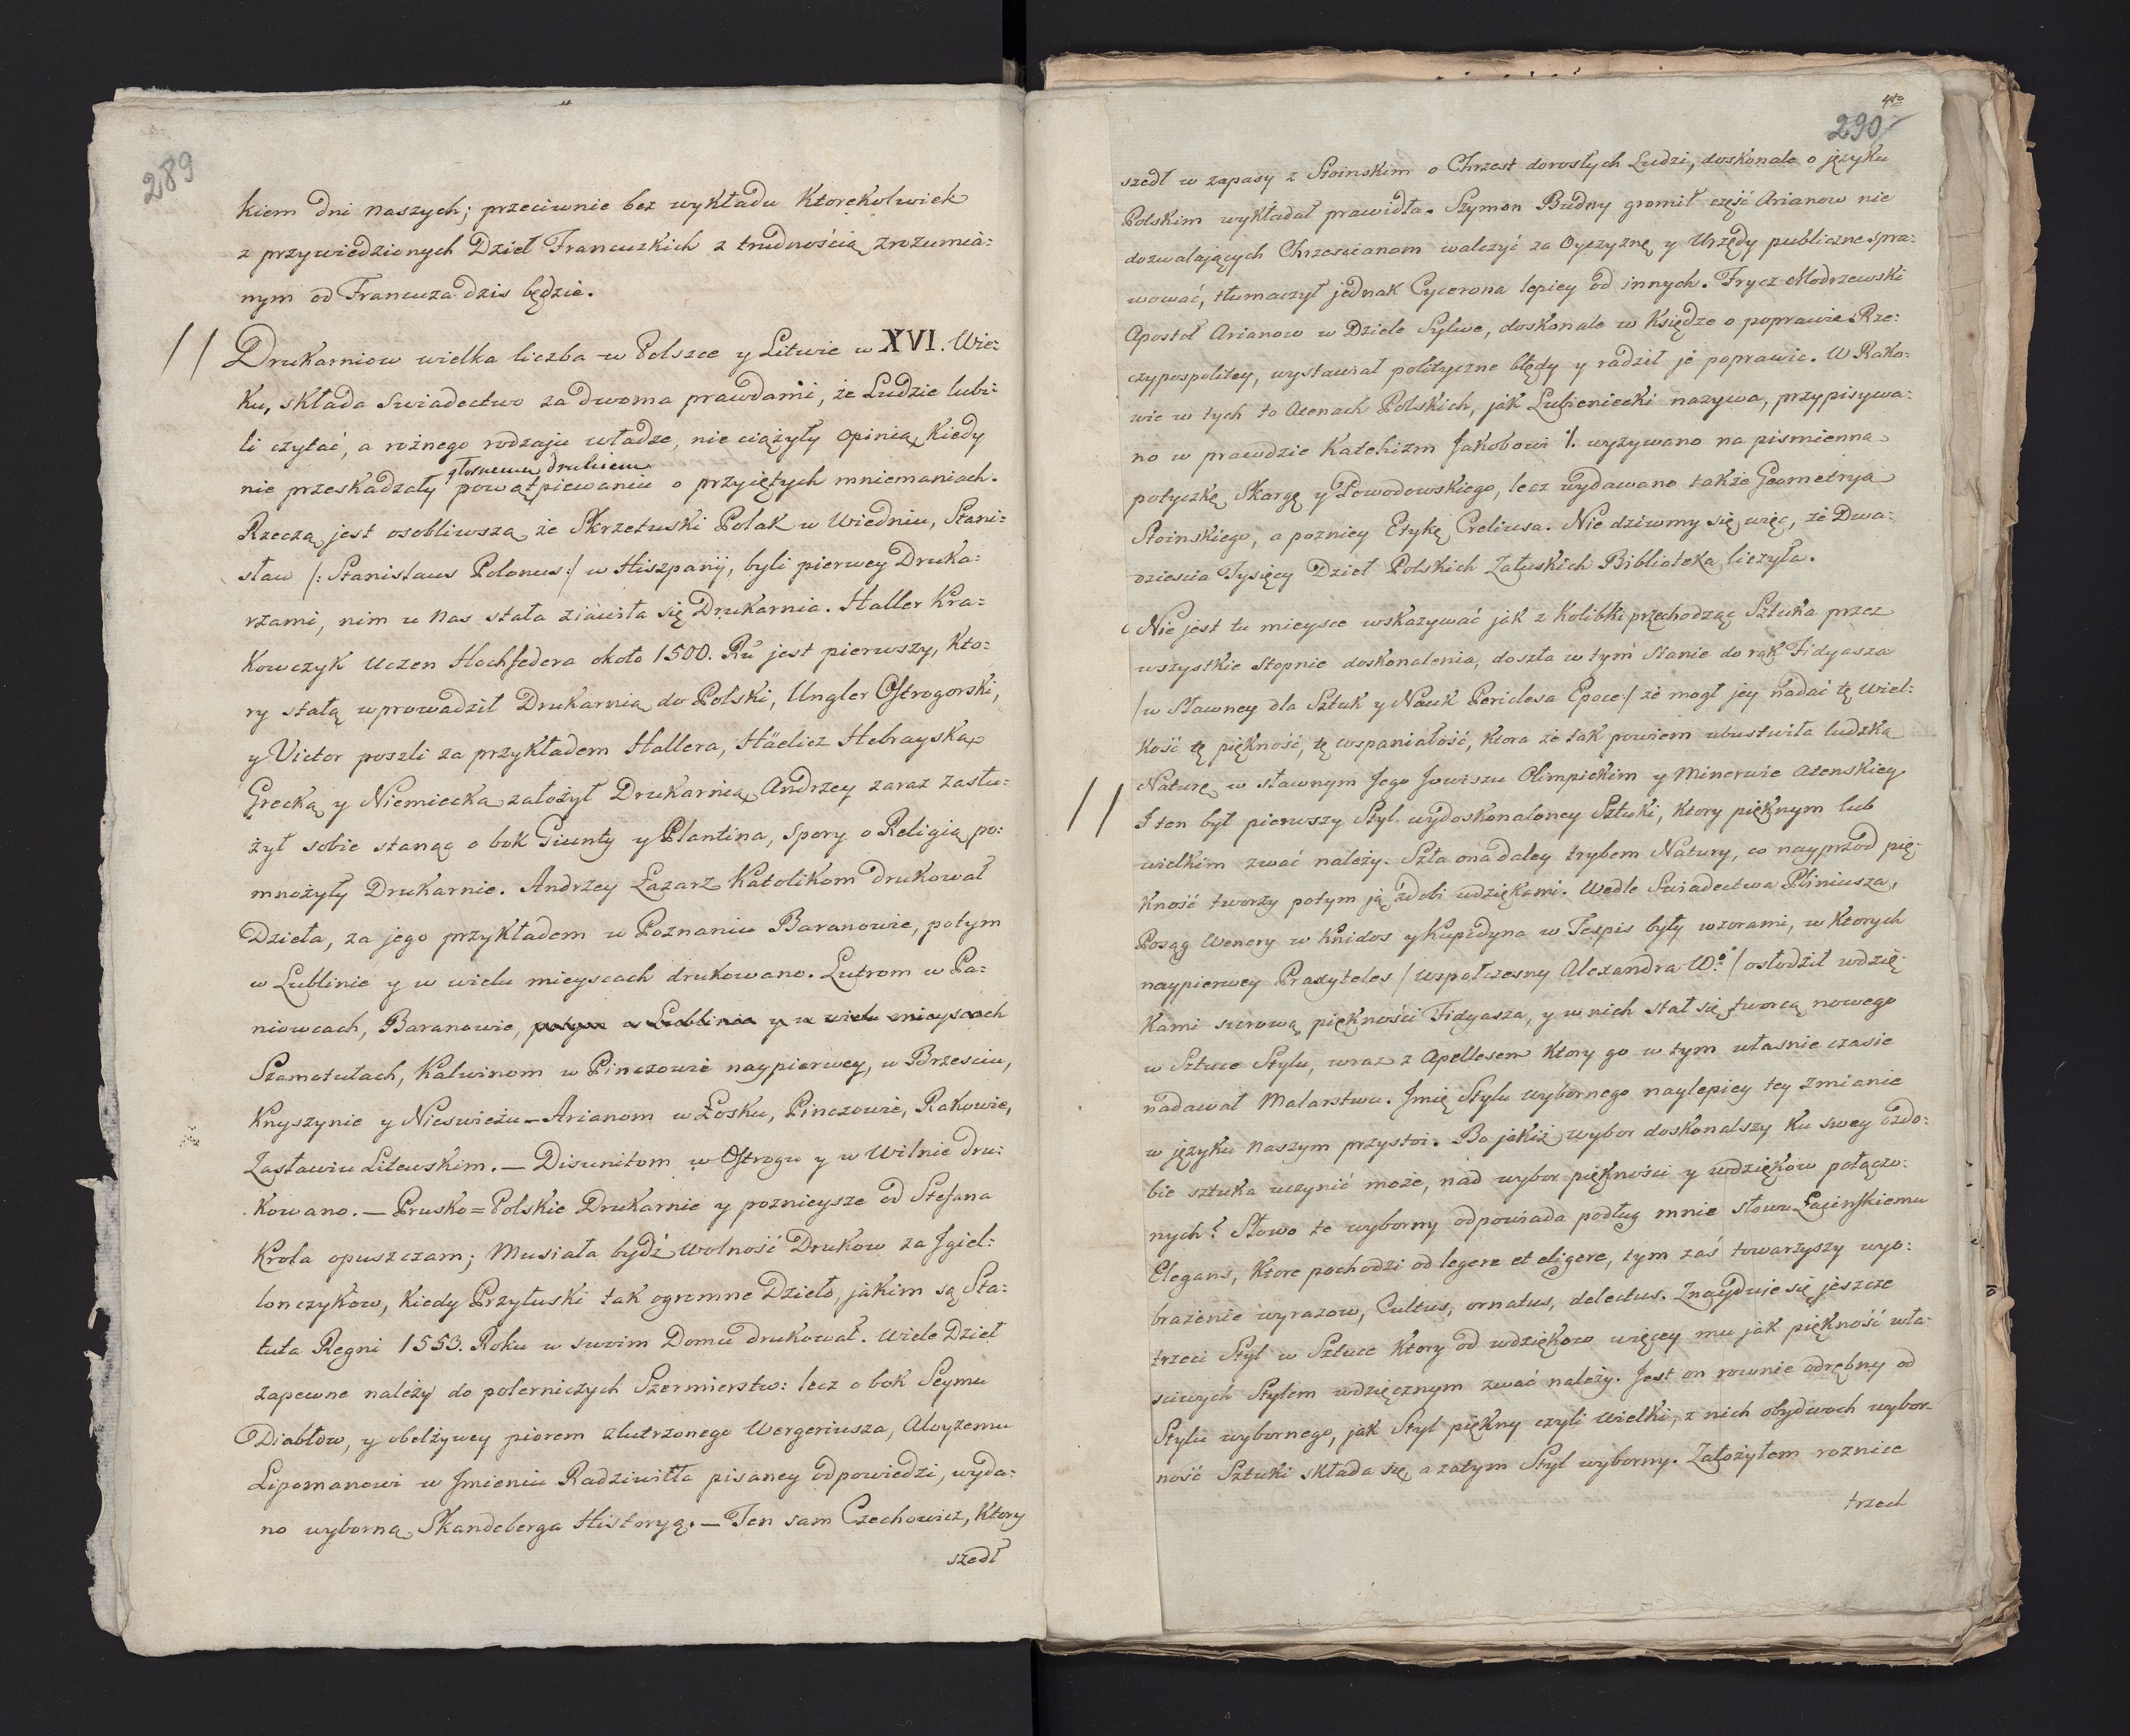 289
kiem dni naszych; przeciwnie bez wykładu Ktorekolwiek
z przywiedzionych Dzieł Francuzkich z trudnością zrozumia:
nym od Francuza dzis będzie.
Drukarniow wielka liczba w Polszce y Litwie w XVI. Wie:
ku, składa swiadectwo za dwoma prawdami, że Ludzie lubi:
li czytać, a rożnego rodzaju władze, nie ciążyły opinią, Kiedy
głosnemu drukiem
nie przeskadzały powątpiewaniu o przyiętych mniemaniach.
Rzeczą jest osobliwszą że Skrzetuski Polak w Wiedniu, Stani:
sław /: Stanislaus Polonus:/ w Hiszpanij, byli pierwey Druka:
rzami, nim u nas stała ziawiła się Drukarnia. Haller Kra:
kowczyk Uczen Hochfedera około 1500. Ru jest pierwszy, Kto:
ry stałą wprowadził Drukarnią do Polski, Ungler Ostrogorski,
y Victor poszli za przykładem Hallera, Häelicz Hebrayską
Grecką y Niemiecką założył Drukarnią, Andrzey zaraz zasłu:
żył sobie stanąc o bok Giunty y Plantina, spory o Religią po:
mnożyły Drukarnie. Andrzey Łazarz Katolikom drukował
Dzieła, za jego przykładem w Poznaniu Baranowie, potym
w Lublinie y w wielu mieyscach drukowano. Lutrom w Pa:
niowcach, Baranowie, potym w Lublinie y w wielu mieyscach
Szamotułach, Kalwinom w Pinczowie naypierwey, w Brzesciu,
Knyszynie y Nieswieżu – Arianom w Łosku, Pinczowie, Rakowie,
Zasławiu Litewskim. – Disunitom w Ostrogu y w Wilnie dru:
kowano. – Prusko=Polskie Drukarnie y poznieysze od Stefana
Krola opuszczam; Musiała bydź wolność Drukow za Jgiel:
lonczykow, Kiedy Przyłuski tak ogromne Dzieło, jakim są Sta:
tuta Regni 1553. Roku w swoim Domu drukował. Wiele Dzieł
zapewne należy do polerniczych Szermierstw: lecz o bok Seymu
Diabłow, y obelżywey piorem zlutrzonego Wergeriusza, Aloyzemu
Lipomanowi w Jmieniu Radziwiłła pisaney odpowiedzi, wyda:
no wyborną Skandeberga Historyą. – Ten sam Czechowicz, Ktory
szedł
4to
290
szedł w zapasy z Stoinskim o Chrzest dorosłych Ludzi, doskonale o języku
Polskim wykładał prawidła. Szymon Budny gromił część Arianow nie
dozwalających Chrzescianom walczyć za Oyczyznę y Urzędy publiczne spra:
wować, tłumaczył jednak Cycerona lepiey od innych. Frycz Modrzewski
Apostoł Arianow w Dziele Sylwe, doskonale w Księdze o poprawie Rze:
czypospolitey, wystawiał polityczne błędy y radził je poprawic. W Rako:
wie w tych to Atenach Polskich, jak Lubieniecki nazywa, przypisywa:
no w prawdzie Katehizm Jakobowi I. wyzywano na pismienną
potyczkę Skargę y Powodowskiego, lecz wydawano także Geometryą
Stoinskiego, a pozniey Etykę Creliusa. Nie dziwmy się więc, że Dwa:
dziescia Tysięcy Dzieł Polskich Załuskich Biblioteka liczyła.
Nie jest tu mieysce wskazywać jak z Kolibki przechodząc Sztuka przez
wszystkie stopnie doskonalenia, doszła w tym stanie do rąk Fidyasza
/w Sławney dla Sztuk y Nauk Periclesa Epoce:/ że mogł jey nadać tę wiel:
kość tę piękność, tę wspaniałość, Ktora że tak powiem ubustwiła ludzką
Naturę w sławnym Jego Jowiszu Olimpickim y Minerwie Atenskiey
I ten był pierwszy Styl wydoskonaloney Sztuki, Ktory pięknym lub
wielkim zwać należy. Szła ona daley trybem Natury, co nayprzod pię:
kność tworzy potym ją zdobi wdziękami. Wedle Swiadectwa Pliniusza,
Posąg Wenery w Knidos y Kupidyna w Tespis były wzorami, w Ktorych
naypierwey Praxyteles /wspołczesny Alexandra Wo:/ osłodził wdzię:
kami surową piękności Fidyasza, y w nich stał się tworcą nowego
w Sztuce Stylu, wraz z Apellesem Ktory go w tym własnie czasie
nadawał Malarstwu. Jmię Stylu wybornego naylepiey tey zmianie
w języku naszym przystoi. Bo jakiż wybor doskonalszy Ku swey ozdo:
bie sztuka uczynić może, nad wybor piękności y wdziękow połączo:
nych? Słowo te wyborny odpowiada podług mnie słowu Łacinskiemu
Elegans, Ktore pochodzi od legere et eligere, tym zaś towarzyszy wyo:
brażenie wyrazow, Cultus, ornatus, delectus. Znayduje się jeszcze
trzeci Styl w Sztuce Ktory od wdziękow więcey mu jak piękność wła:
sciwych Stylem wdzięcznym zwać należy. Jest on rownie odrębny od
Stylu wybornego, jak Styl piękny czyli wielki, z nich obydwoch wybor-
ność Sztuki składa się, a zatym Styl wyborny. Założyłem roznice
trzech